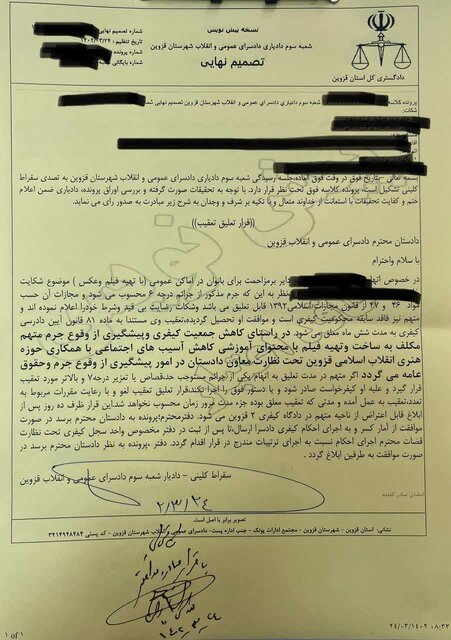 نسخه پیش نویس
شعبه سوم دادیاری دادسرای عمومی و انقلاب شهرستان قزوین
تصمیم نهایی
دادگستری کل استان قزوین
شماره تصمیم نهایی
تاریخ تنظیم: ۱۴۰۲/۰۳/۲۴
شماره پرونده
شماره بایگانی
پرونده کلاسه شعبه سوم دادیاری دادسرای عمومی و انقلاب شهرستان قزوین تصمیم نهایی
بسمه تعالی -بتاریخ فوق در وقت فوق العاده،جلسه رسیدگی شعبه سوم دادیاری دادسرای عمومی و انقلاب شهرستان قزوین به تصدی سقراط
کلینی تشکیل است، پرونده کلاسه فوق تحت نظر قرار دارد. با توجه به تحقیقات صورت گرفته و بررسی اوراق پرونده، دادیاری ضمن اعلام
ختم و کفایت تحقیقات با استعانت از خداوند متعال و با تکیه بر شرف و وجدان به شرح زیر مبادرت به صدور رای می نماید.
((قرار تعلیق تعقیب))
دادستان محترم دادسرای عمومی و انقلاب قزوین
با سلام واحترام
در خصوص اتهام دایر برمزاحمت برای بانوان در اماکن عمومی (با تهیه فیلم وعکس ) موضوع شکایت
نظر به این که جرم مذکور از جرائم درجه ۶ محسوب می شود و مجازات آن حسب
مواد ۴۶ و ۴۷ از قانون مجازات اسلامی۱۳۹۲ قابل تعلیق می باشد وشکات رضایت بی قید وشرط خودرا اعلام نموده اند و
متهم نیز فاقد سابقه محکومیت کیفری است و موافقت او تحصیل گردیده،تعقیب وی مستندا به ماده ۸۱ قانون آیین دادرسی
کیفری به مدت شش ماه معلق می شود. در راستای کاهش جمعیت کیفری وپیشگیری از وقوع جرم متهم
مکلف به ساخت وتهیه فیلم با محتوای آموزشی کاهش آسیب های اجتماعی با همکاری حوزه
هنری انقلاب اسلامی قزوین تحت نظارت معاون دادستان در امور پیشگیری از وقوع جرم وحقوق
عامه می گردد اگر متهم در مدت تعلیق به اتهام یکی از جرائم مستوجب حد،قصاص یا تعزیر درجه۷ و بالاتر مورد تعقیب
گیرد و علیه او کیفرخواست صادر شود و یا دستور فوق را اجرا نکند،قرار تعلیق تعقیب لغو و با رعایت مقررات مربوط به
تعدد،تعقیب به عمل آمده و مدتی که تعقیب معلق بوده جزء مدت مرور زمان محسوب نخواهد شد.این قرار ظرف ده روز پس از
ابلاغ قابل اعتراض از ناحیه متهم در دادگاه کیفری ۲ قزوین می شود. دفترمحترم:پرونده به دادستان محترم برسد در صورت
موافقت از آمار کسر و به اجرای احکام کیفری دادسرا ارسال،تا پس از ثبت در دفتر مخصوص واحد سجل کیفری تحت نظارت
قضات محترم اجرای احکام نسبت به اجرای ترتیبات مندرج در قرار اقدام گردد. دفتر ،پرونده به نظر دادستان محترم برسد در
صورت موافقت به طرفین ابلاغ گردد .
سقراط کلینی - دادیار شعبه سوم دادسرای عمومی و انقلاب قزوین
امضای صادر کننده
۲/۳/۲۴
تصویر برابر با اصل است.
نشانی: استان قزوین - شهرستان قزوین - مجتمع ادارات پونک - جنب اداره پست- دادسرای عمومی و انقلاب شهرستان قزوین - کد پستی ۳۴۱۴۹۴۸۴۸۴
۲۴/۰۳/۱۴۰۲ ۰۸:۳۳
۱ of ۱